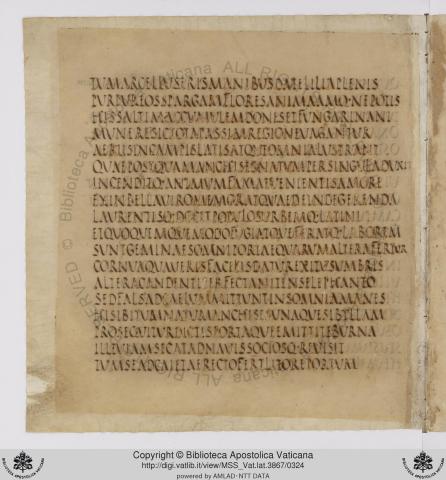 TUMARCELLUSERISMANIBUSDATELILIAPLENIS
PURPUREOSSPARGAMFLORESANIMAMQ·NEPOTIS
HISSALTIMACCUMULEMDONISETFUNGARINANI
MUNERESICTOTAPASSIMREGIONEVAGANTUR
AERISINCAMPISLATISATQ·OMNIALUSTRANT
QUAEPOSTQUAMANCHISESNATUMPERSINGULADUXIT
INCENDITQ·ANIMUMFAMAEVENIENTISAMORE
EXINBELLAVIROMEMORATQUAEDEINDEGERENDA
LAURENTISQ·DOCETPOPULOSURBEMQ·LATINI
ETQUOQUEMQUEMODOFUGIATQUEFERATQ·LABOREM
SUNTGEMINAESOMNIPORTAEQUARUMALTERAFERTUR
CORNEAQUAVERISFACILISDATUREXITUSUMBRIS
ALTERACANDENTIPERFECTANITENSELEPHANTO
SEDFALSAADCAELUMMITTUNTINSOMNIAMANES
HISIBITUMNATUMANCHISESUNAQUESIBYLLAM
PROSEQUITURDICTISPORTAQUEEMITTITEBURNA
ILLEVIAMSECATADNAVISSOCIOSQ·REVISIT
TUMSEADCAIETAERECTOFERTLITOREPORTUM
Copyright © Biblioteca Apostolica Vaticana
http://digi.vatlib.it/view/MSS_Vat.lat.3867/0324
powered by AMLAD-NTT DATA
BIBLIOTECA APOSTOLICA VATICANA
BIBLIOTECA APOSTOLICA VATICANA